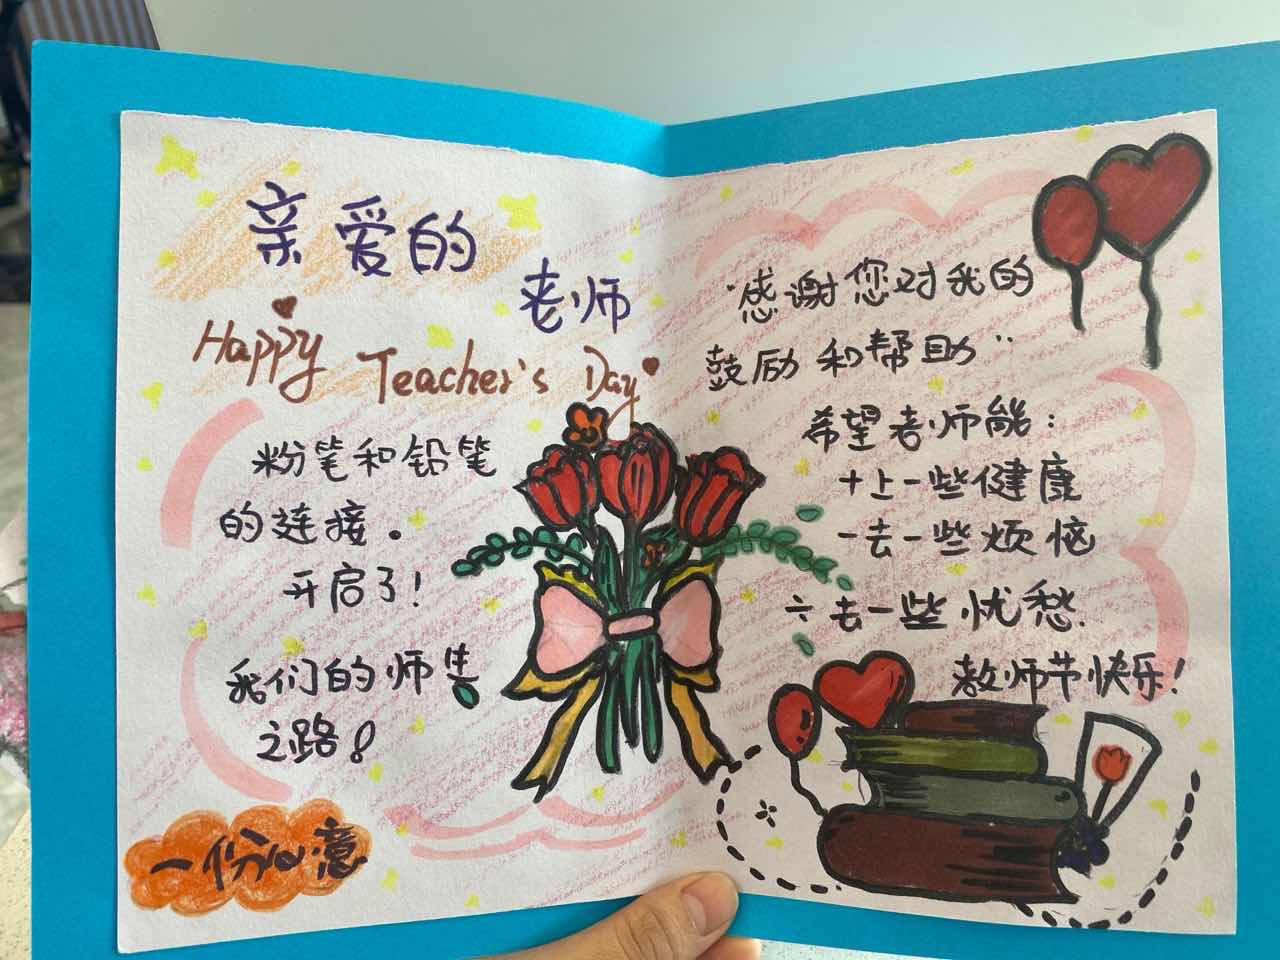 亲爱的
老师
Happy Teacher's Day
粉笔和铅笔
的连接.
开启了!
我们的师生
之路!
一份心意
"感谢您对我的
鼓励和帮助"
希望老师能:
+上一些健康
-去一些烦恼
÷去一些忧愁.
教师节快乐!